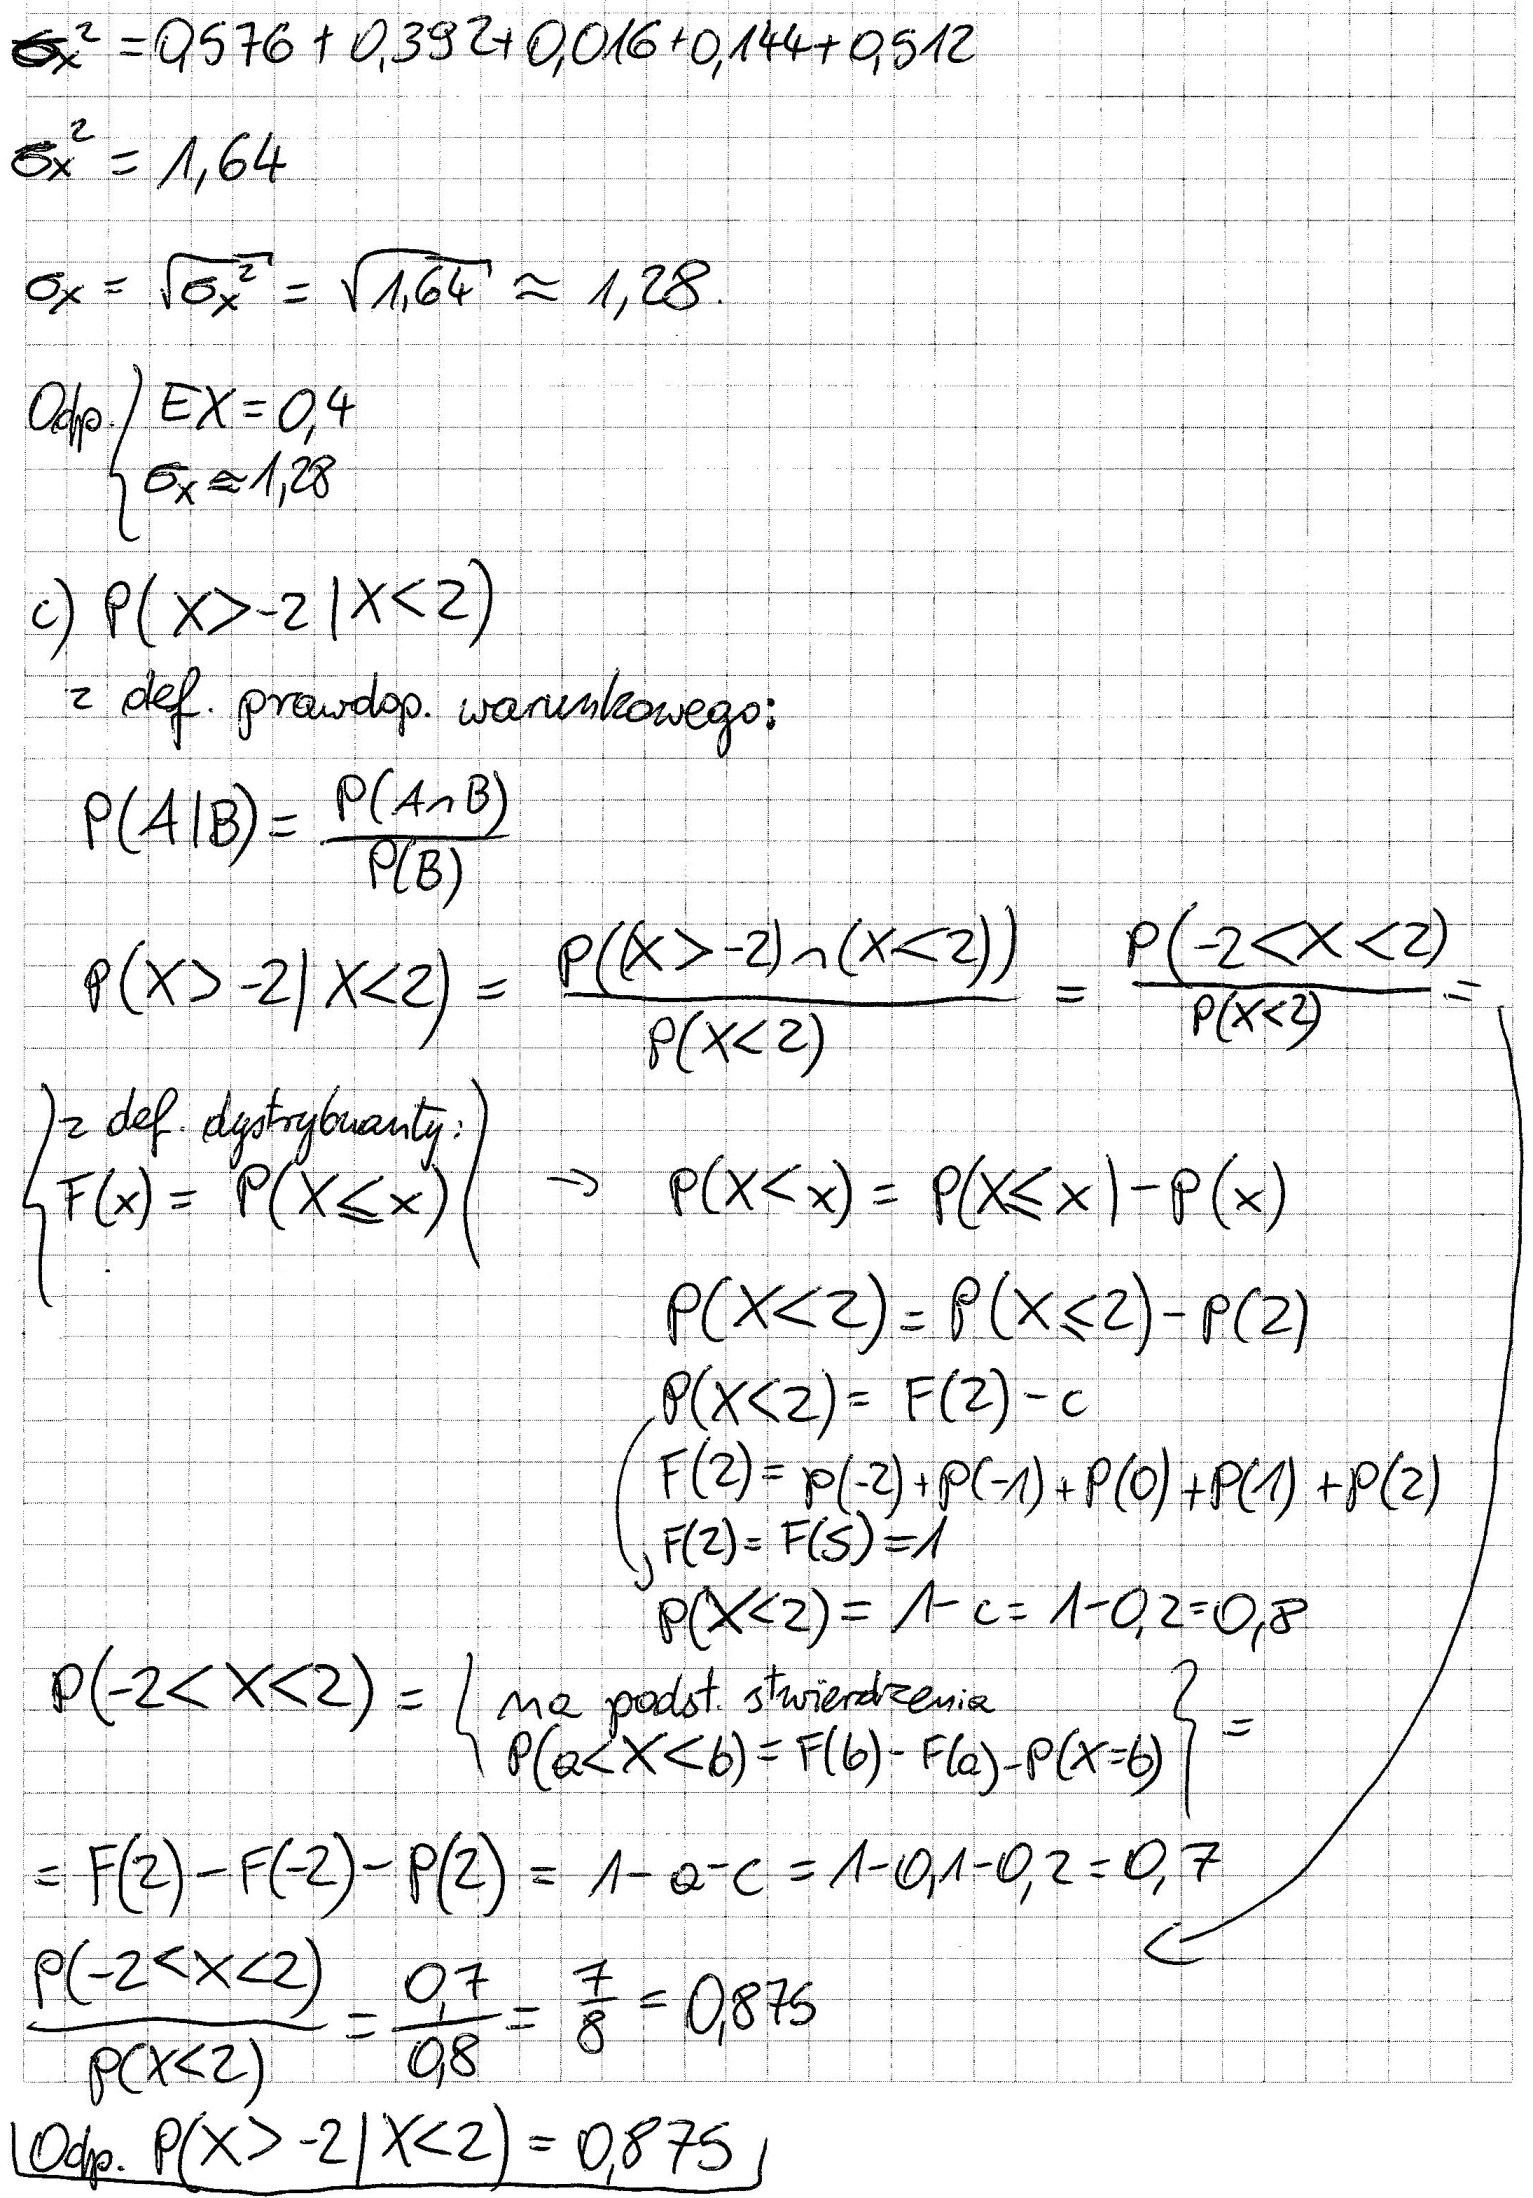 σx² = 0,576 + 0,392 + 0,016 + 0,144 + 0,512
σx² = 1,64
σx = √σx² = √1,64 ≈ 1,28.
Odp. { EX = 0,4
σx ≈ 1,28
c) P(X > -2 | X < 2)
z def. prawdop. warunkowego:
P(A|B) = P(A∩B) / P(B)
P(X > -2 | X < 2) = P((X > -2) ∩ (X < 2)) / P(X < 2) = P(-2 < X < 2) / P(X < 2) =
{ z def. dystrybuanty:
F(x) = P(X ≤ x) } → P(X < x) = P(X ≤ x) - P(x)
P(X < 2) = P(X ≤ 2) - P(2)
P(X < 2) = F(2) - c
F(2) = P(-2) + P(-1) + P(0) + P(1) + P(2)
F(2) = F(5) = 1
P(X < 2) = 1 - c = 1 - 0,2 = 0,8
P(-2 < X < 2) = { na podst. stwierdzenia
P(a < X < b) = F(b) - F(a) - P(X = b) } =
= F(2) - F(-2) - P(2) = 1 - a - c = 1 - 0,1 - 0,2 = 0,7
P(-2 < X < 2) / P(X < 2) = 0,7 / 0,8 = 7/8 = 0,875
Odp. P(X > -2 | X < 2) = 0,875